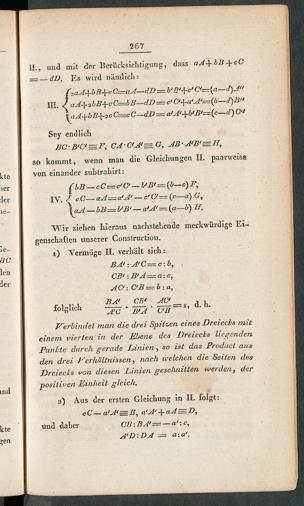 267
II., und mit der Berücksichtigung, dass aA+bB+cC
=—dD. Es wird nämlich:
III. {2aA+bB+cC=aA—dD=b'B'+c'C'=(a—d)A''
aA+2bB+cC=bB—dD=c'C'+a'A'=(b—d)B''
aA+bB+2cC=cC—dD=a'A'+b'B'=(c—d)C''
Sey endlich
BC·B'C'≡F, CA·C'A'≡G, AB·A'B'≡H,
so kommt, wenn man die Gleichungen II. paarweise
von einander subtrahirt:
IV. {bB—cC=c'C'—b'B'=(b—c)F,
cC—aA=a'A'—c'C'=(c—a)G,
aA—bB=b'B'—a'A'=(a—b)H.
Wir ziehen hieraus nachstehende merkwürdige Ei-
genschaften unserer Construction.
1) Vermöge II. verhält sich:
BA':A'C=c:b,
CB':B'A=a:c,
AC':C'B=b:a,
folglich BA'/A'C · CB'/B'A · AC'/C'B = 1, d. h.
Verbindet man die drei Spitzen eines Dreiecks mit
einem vierten in der Ebene des Dreiecks liegenden
Punkte durch gerade Linien, so ist das Product aus
den drei Verhältnissen, nach welchen die Seiten des
Dreiecks von diesen Linien geschnitten werden, der
positiven Einheit gleich.
2) Aus der ersten Gleichung in II. folgt:
cC—a'A'≡B, a'A'+aA≡D,
und daher CB:BA'=—a':c,
A'D:DA = a:a'.